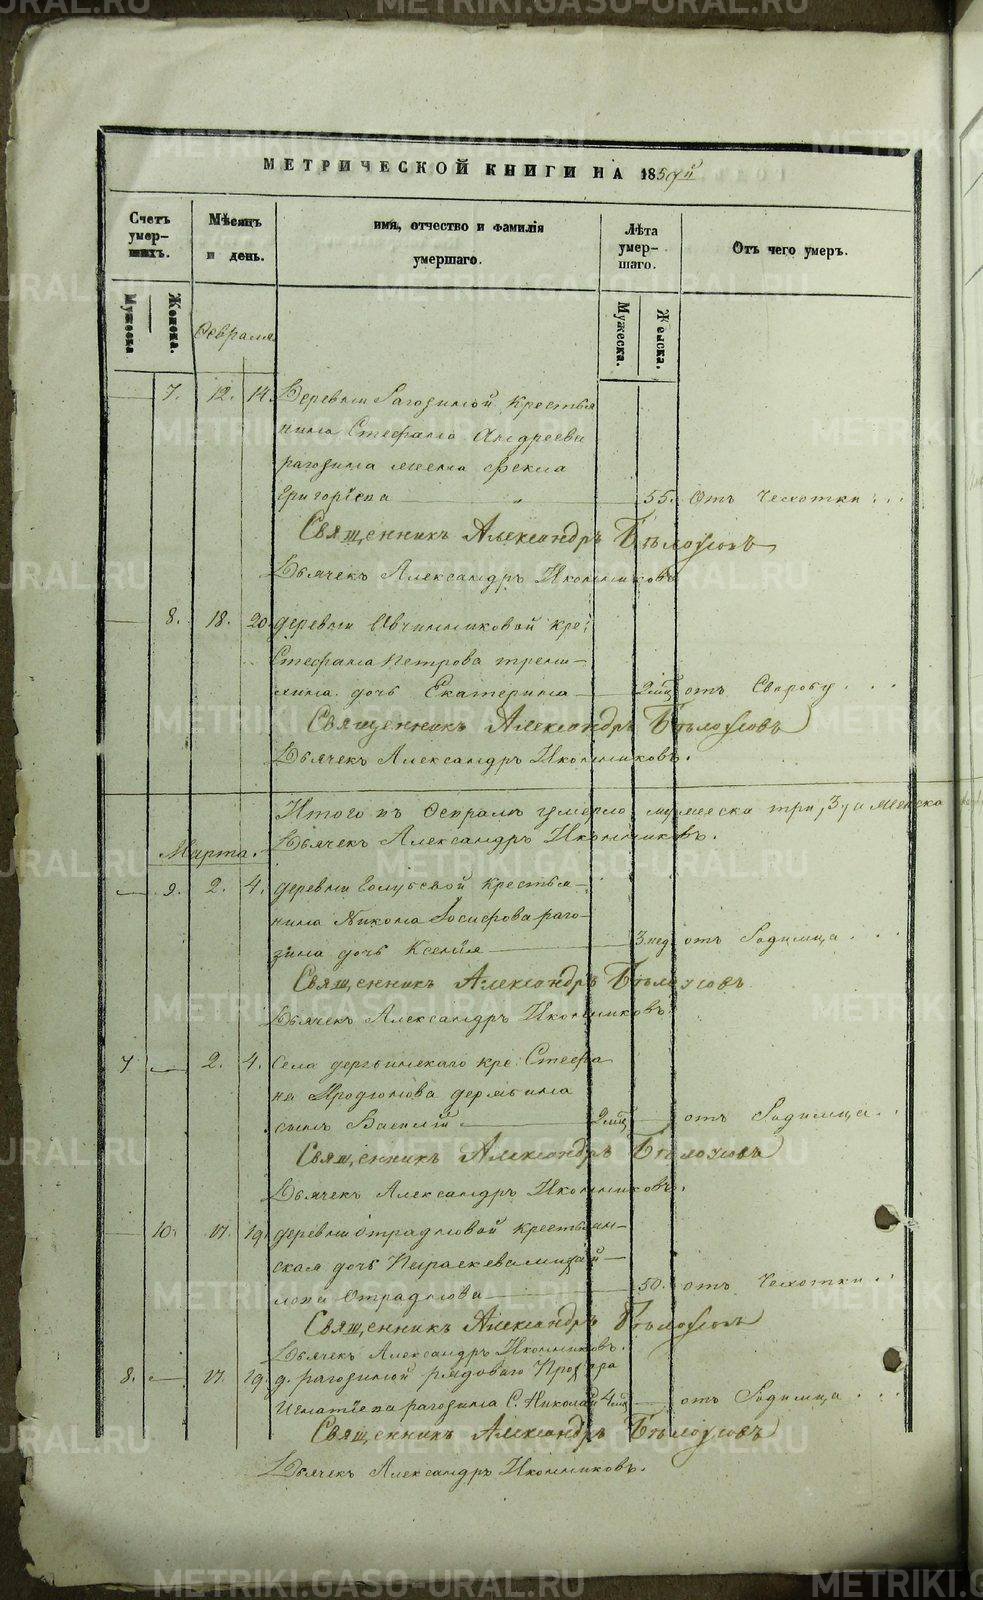 МЕТРИЧЕСКОЙ КНИГИ НА 185 й
Счетъ умер-шихъ. Мѣсяцъ и день. имя, отчество и фамилія умершаго. Лѣта умер-шаго. Отъ чего умеръ.
Мужеска Женска. Февраля Мужеска. Женска.
7. 12. 14. Деревни Рагозиной Крестья
нина Стефана Андреева
рагозина жена Фекла
Григорıева 55. Отъ Чехотки...
Священникъ Александръ Бѣлоусовъ
Дьячекъ Александръ Иконниковъ
8. 18. 20. деревни Овчинниковой Кре:
Стефана Петрова
дочь Екатерина 2 мѣц отъ Свороbу...
Священникъ Александръ Бѣлоусовъ
Дьячекъ Александръ Иконниковъ.
Итого въ Февралѣ умерло мужеска три, 3, а женска
Дьячекъ Александръ Иконниковъ.
Марта.
9. 2. 4. деревни Голубевой Крестья-
нина Никона Іосифова раго-
зина дочь Ксенія 3 нед отъ Родимца...
Священникъ Александръ Бѣлоусовъ
Дьячекъ Александръ Иконниковъ
7 2. 4. Села кре: Стефа
на Иродıонова
сынъ Василій 2 мѣц отъ Родимца..
Священникъ Александръ Бѣлоусовъ
Дьячекъ Александръ Иконниковъ.
10. 17. 19. деревни Отрадновой крестьян-
ская дочь Параскева
Отраднова 50. отъ Чехотки..
Священникъ Александръ Бѣлоусовъ
Дьячекъ Александръ Иконниковъ.
8. 17. 19. д. рагозиной рядоваго Прохора
Игнатıева рагозина С. Николай 4 мѣц отъ Родимца...
Священникъ Александръ Бѣлоусовъ
Дьячекъ Александръ Иконниковъ.
METRIKI.GASO-URAL.RU